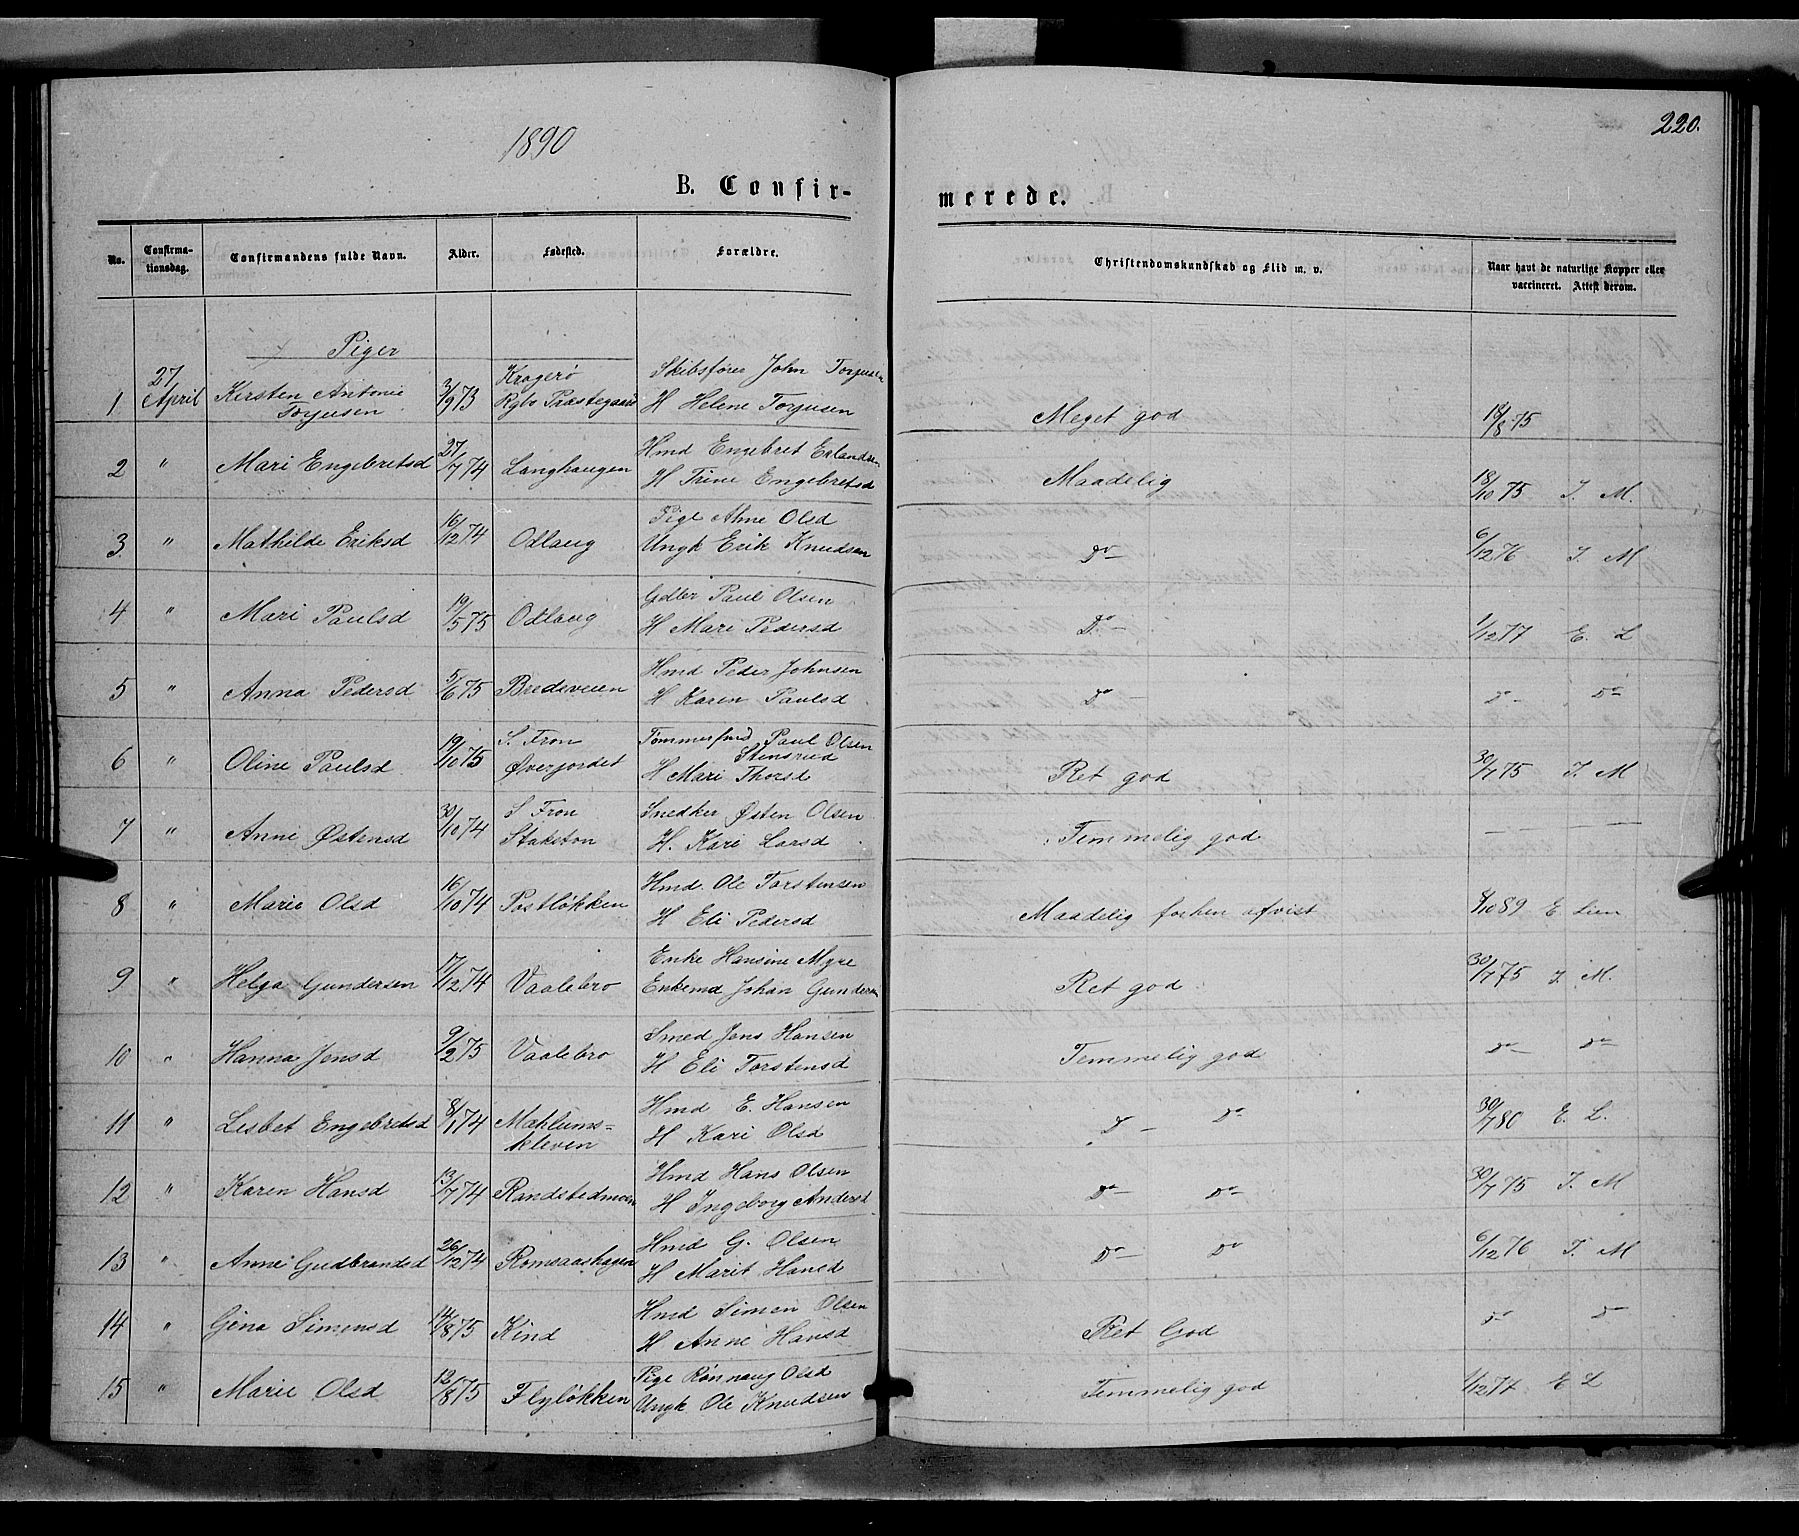 1890
220.
B. Confir-
merede.
No.
Confirma-
tionsdag.
Confirmandens fulde Navn.
Alder.
Fødested.
Forældre.
Christendomskundskab og Flid m. v.
Naar havt de naturlige Kopper eller
vaccineret. Attest derom.
Piger
1 27 April Kirsten Antonie Torjusen 3/9 73 Kragerø Rgbo Præstegaard Skibsfører John Torjusen H Helene Torjusen Meget god 18/8 75
2 " Mari Engebretsd 27/7 74 Langhaugen Hmd Engebret Erlandsen H Trine Engebretsd Maadelig 18/10 75 J. M.
3 " Mathilde Eriksd 16/12 74 Odlaug Pige Anne Olsd Ungk Erik Knudsen Do — 6/12 76 J. M
4 " Mari Paulsd 19/5 75 Odlaug Gdbr Paul Olsen H Mari Pedersd Do — 1/12 77 E. L
5 " Anna Pedersd 5/6 75 Bredeveien Hmd Peder Johnsen H Karen Paulsd Do — do — Do
6 " Oline Paulsd 19/10 75 S. Fron Øverjordet Tømmermd Paul Olsen Stensrud H Mari Thorsd Ret god 30/7 75 J. M
7 " Anne Østensd 30/10 74 S Fron Stokston Snedker Østen Olsen H. Kari Larsd Temmelig god — — — —
8 " Marie Olsd 16/10 74 Postløkken Hmd. Ole Torstensen H Eli Pedersd Maadelig forhen afvist 9/10 89 E Lien
9 " Helga Gundersen 17/12 74 Vaalebro Enke Hansine Myre Enkemd Johan Gundersen Ret god 30/7 75 J. M.
10 " Hanna Jensd 9/2 75 Vaalebro Smed Jens Hansen H Eli Torstensd Temmelig god do — do
11 " Lisbet Engebretsd 8/1 74 Mæhlums= kleven Hmd E. Hansen H Kari Olsd D — do 30/7 80 E. L.
12 " Karen Hansd 13/7 74 Randstadmoen Hmd Hans Olsen H Ingeborg Andersd do — do — 30/7 75 J. M
13 " Anne Gudbrandsd 26/12 74 Romsaashagen Hmd G. Olsen H Marit Hansd Do — Do 6/12 76 J. M
14 " Gina Simensd 14/8 75 Kind Hmd Simen Olsen H Anne Hansd Ret God do do
15 " Marie Olsd 12/8 75 Flyløkken Pige Rønnaug Olsd Ungk Ole Knudsen Temmelig god 1/12 77 E L